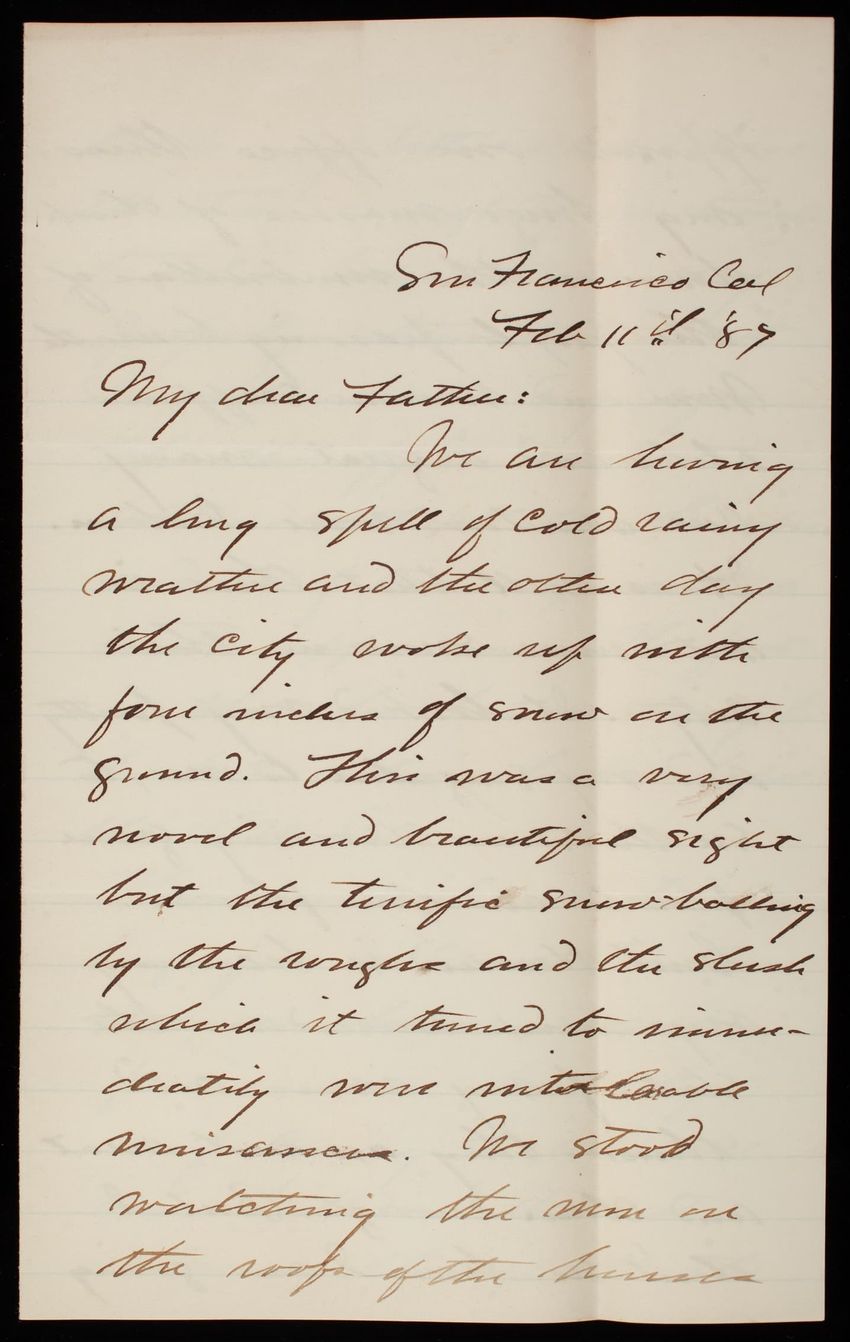 San Francisco Cal
Feb 11th '87
My dear Father:
We are having
a long spell of cold rainy
weather and the other day
the city woke up with
four inches of snow on the
ground. This was a very
novel and beautiful sight
but the terrific snow-balling
by the roughs and the slush
which it turned to imme-
diatily were intolerable
nuisances. We stood
watching the men on
the roofs of the houses